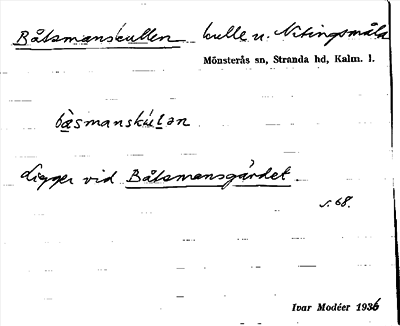 Båtsmanskullen kulle n. Nitingsmåla
Mönsterås sn, Stranda hd, Kalm. l.
bàsmanskùlən
Ligger vid Båtsmansgärdet.
s. 68.
Ivar Modéer 1936